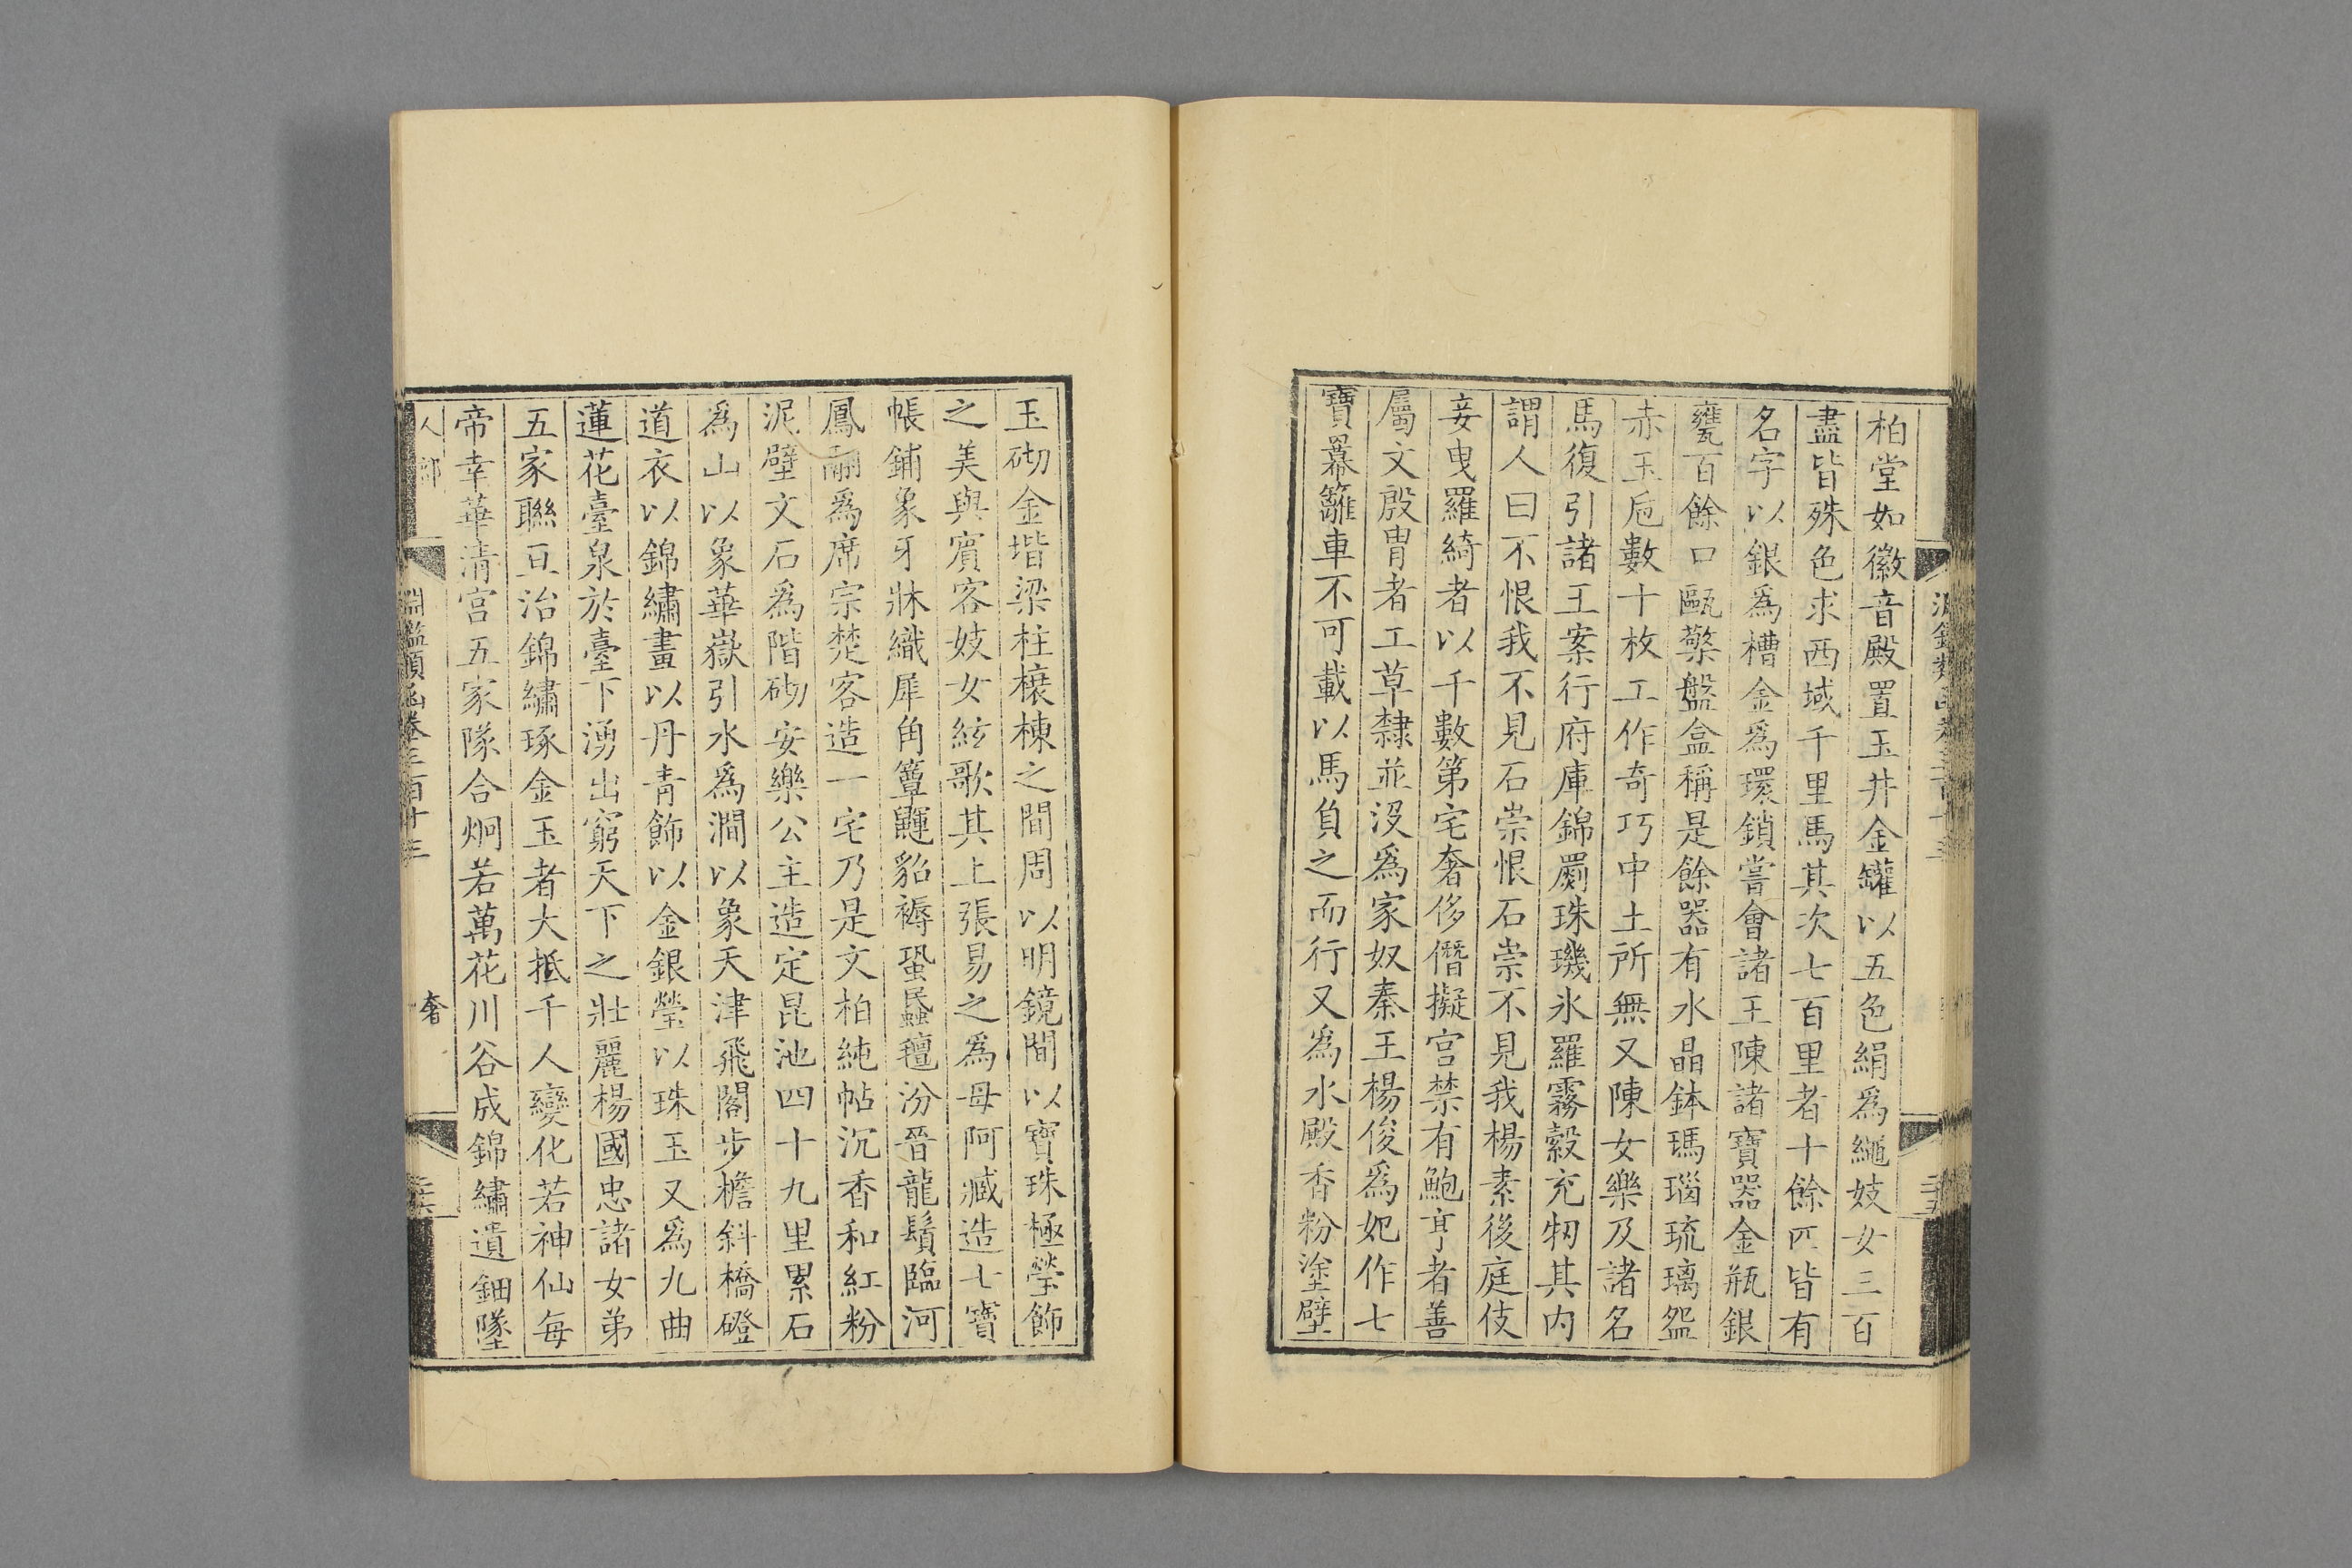 柏堂如徽音殿置玉井金罐以五色絹爲繩妓女三百
盡皆殊色求西域千里馬其次七百里者十餘匹皆有
名字以銀爲槽金爲環鎖嘗會諸王陳諸寶器金瓶銀
甕百餘口甌檠盤盒稱是餘器有水晶鉢瑪瑙琉璃盌
赤玉巵數十枚工作奇巧中土所無又陳女樂及諸名
馬復引諸王案行府庫錦罽珠璣氷羅霧縠充牣其内
謂人曰不恨我不見石崇恨石崇不見我楊素後庭伎
妾曳羅綺者以千數第宅奢侈僭擬宫禁有鮑亨者善
屬文殷胄者工草隸並没爲家奴秦王楊俊爲妃作七
寶羃䍦車不可載以馬負之而行又爲水殿香粉塗壁
玉砌金堦梁柱榱棟之間周以明鏡間以寶珠極瑩飾
之美與賓客妓女絃歌其上張易之爲母阿臧造七寶
帳鋪象牙牀織犀角簟鼲貂褥蛩䖟氊汾晉龍鬚臨河
鳳翮爲席宗楚客造一宅乃是文柏純帖沉香和紅粉
泥壁文石爲階砌安樂公主造定昆池四十九里累石
爲山以象華嶽引水爲澗以象天津飛閣步檐斜橋磴
道衣以錦繡畫以丹青飾以金銀瑩以珠玉又爲九曲
蓮花臺泉於臺下湧出窮天下之壯麗楊國忠諸女弟
五家聯亘治錦繡琢金玉者大抵千人變化若神仙每
帝幸華清宫五家隊合炯若萬花川谷成錦繡遺鈿墜
人部 淵鑑類函卷三百十三 奢 二六